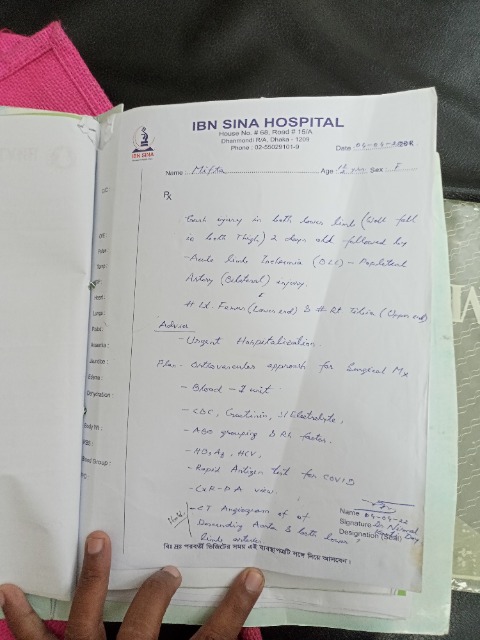 IBN SINA HOSPITAL
House No. # 68, Road # 15/A
Dhanmondi R/A, Dhaka - 1209
Phone : 02-55029101-9
IBN SINA
Date :
Name : Age Sex : F
Rx
injury in both lower limb (Wall fall
in both thigh) 2 days old followed by
- Acute limb Ischaemia (BLL) - Popliteal
Artery (Bilateral) injury
# Lt. Femur (Lower end) & # Rt Tibia (Upper end)
Advice
- Urgent Hospitalization.
Plan - approach for Surgical Mx
- Blood - 1 unit
- CBC, Creatinin, S/Electrolyte,
- ABO grouping & Rh factor.
- HBsAg, HCV.
- Rapid Antigen test for COVID
- CxR-P/A view.
- CT Angiogram of
Descending Aorta & both lower
limb
Name
Signature Dr.
Designation (Seal)
বিঃ দ্রঃ পরবর্তী ভিজিটের সময় এই ব্যবস্থাপত্রটি সঙ্গে নিয়ে আসবেন।
Anaemia :
Jaundice :
Dehydration :
Body Wt :
Blood Group :